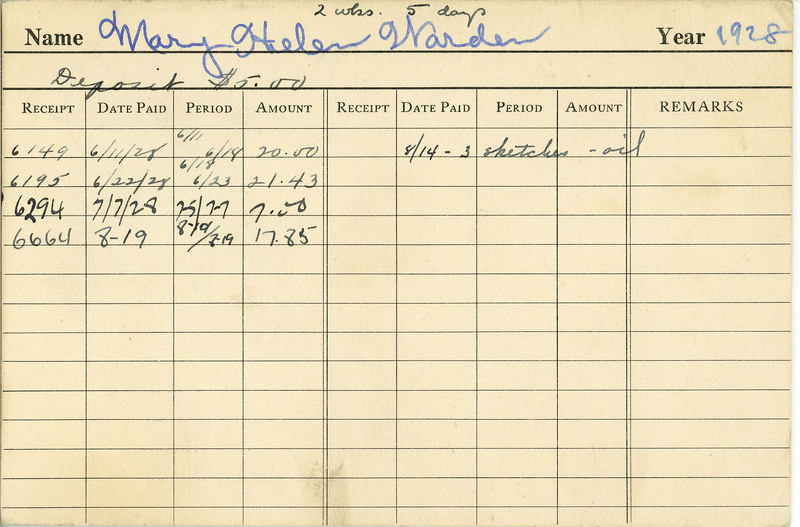 2 wks. 5 days
Name Mary Helen Warden Year 1928
Deposit $5.00
RECEIPT DATE PAID PERIOD AMOUNT RECEIPT DATE PAID PERIOD AMOUNT REMARKS
6149 6/11/28 6/11 6/18 20.00 8/14 - 3 sketches - oil
6195 6/22/28 6/18 6/23 21.43
6294 7/7/28 7.50
6664 8-19 8-19 17.85